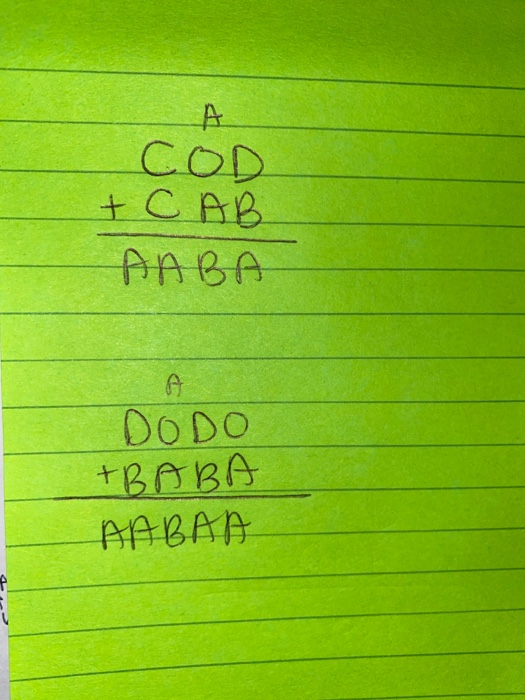 A
COD
+ CAB
AABA
A
DODO
+BABA
AABAA